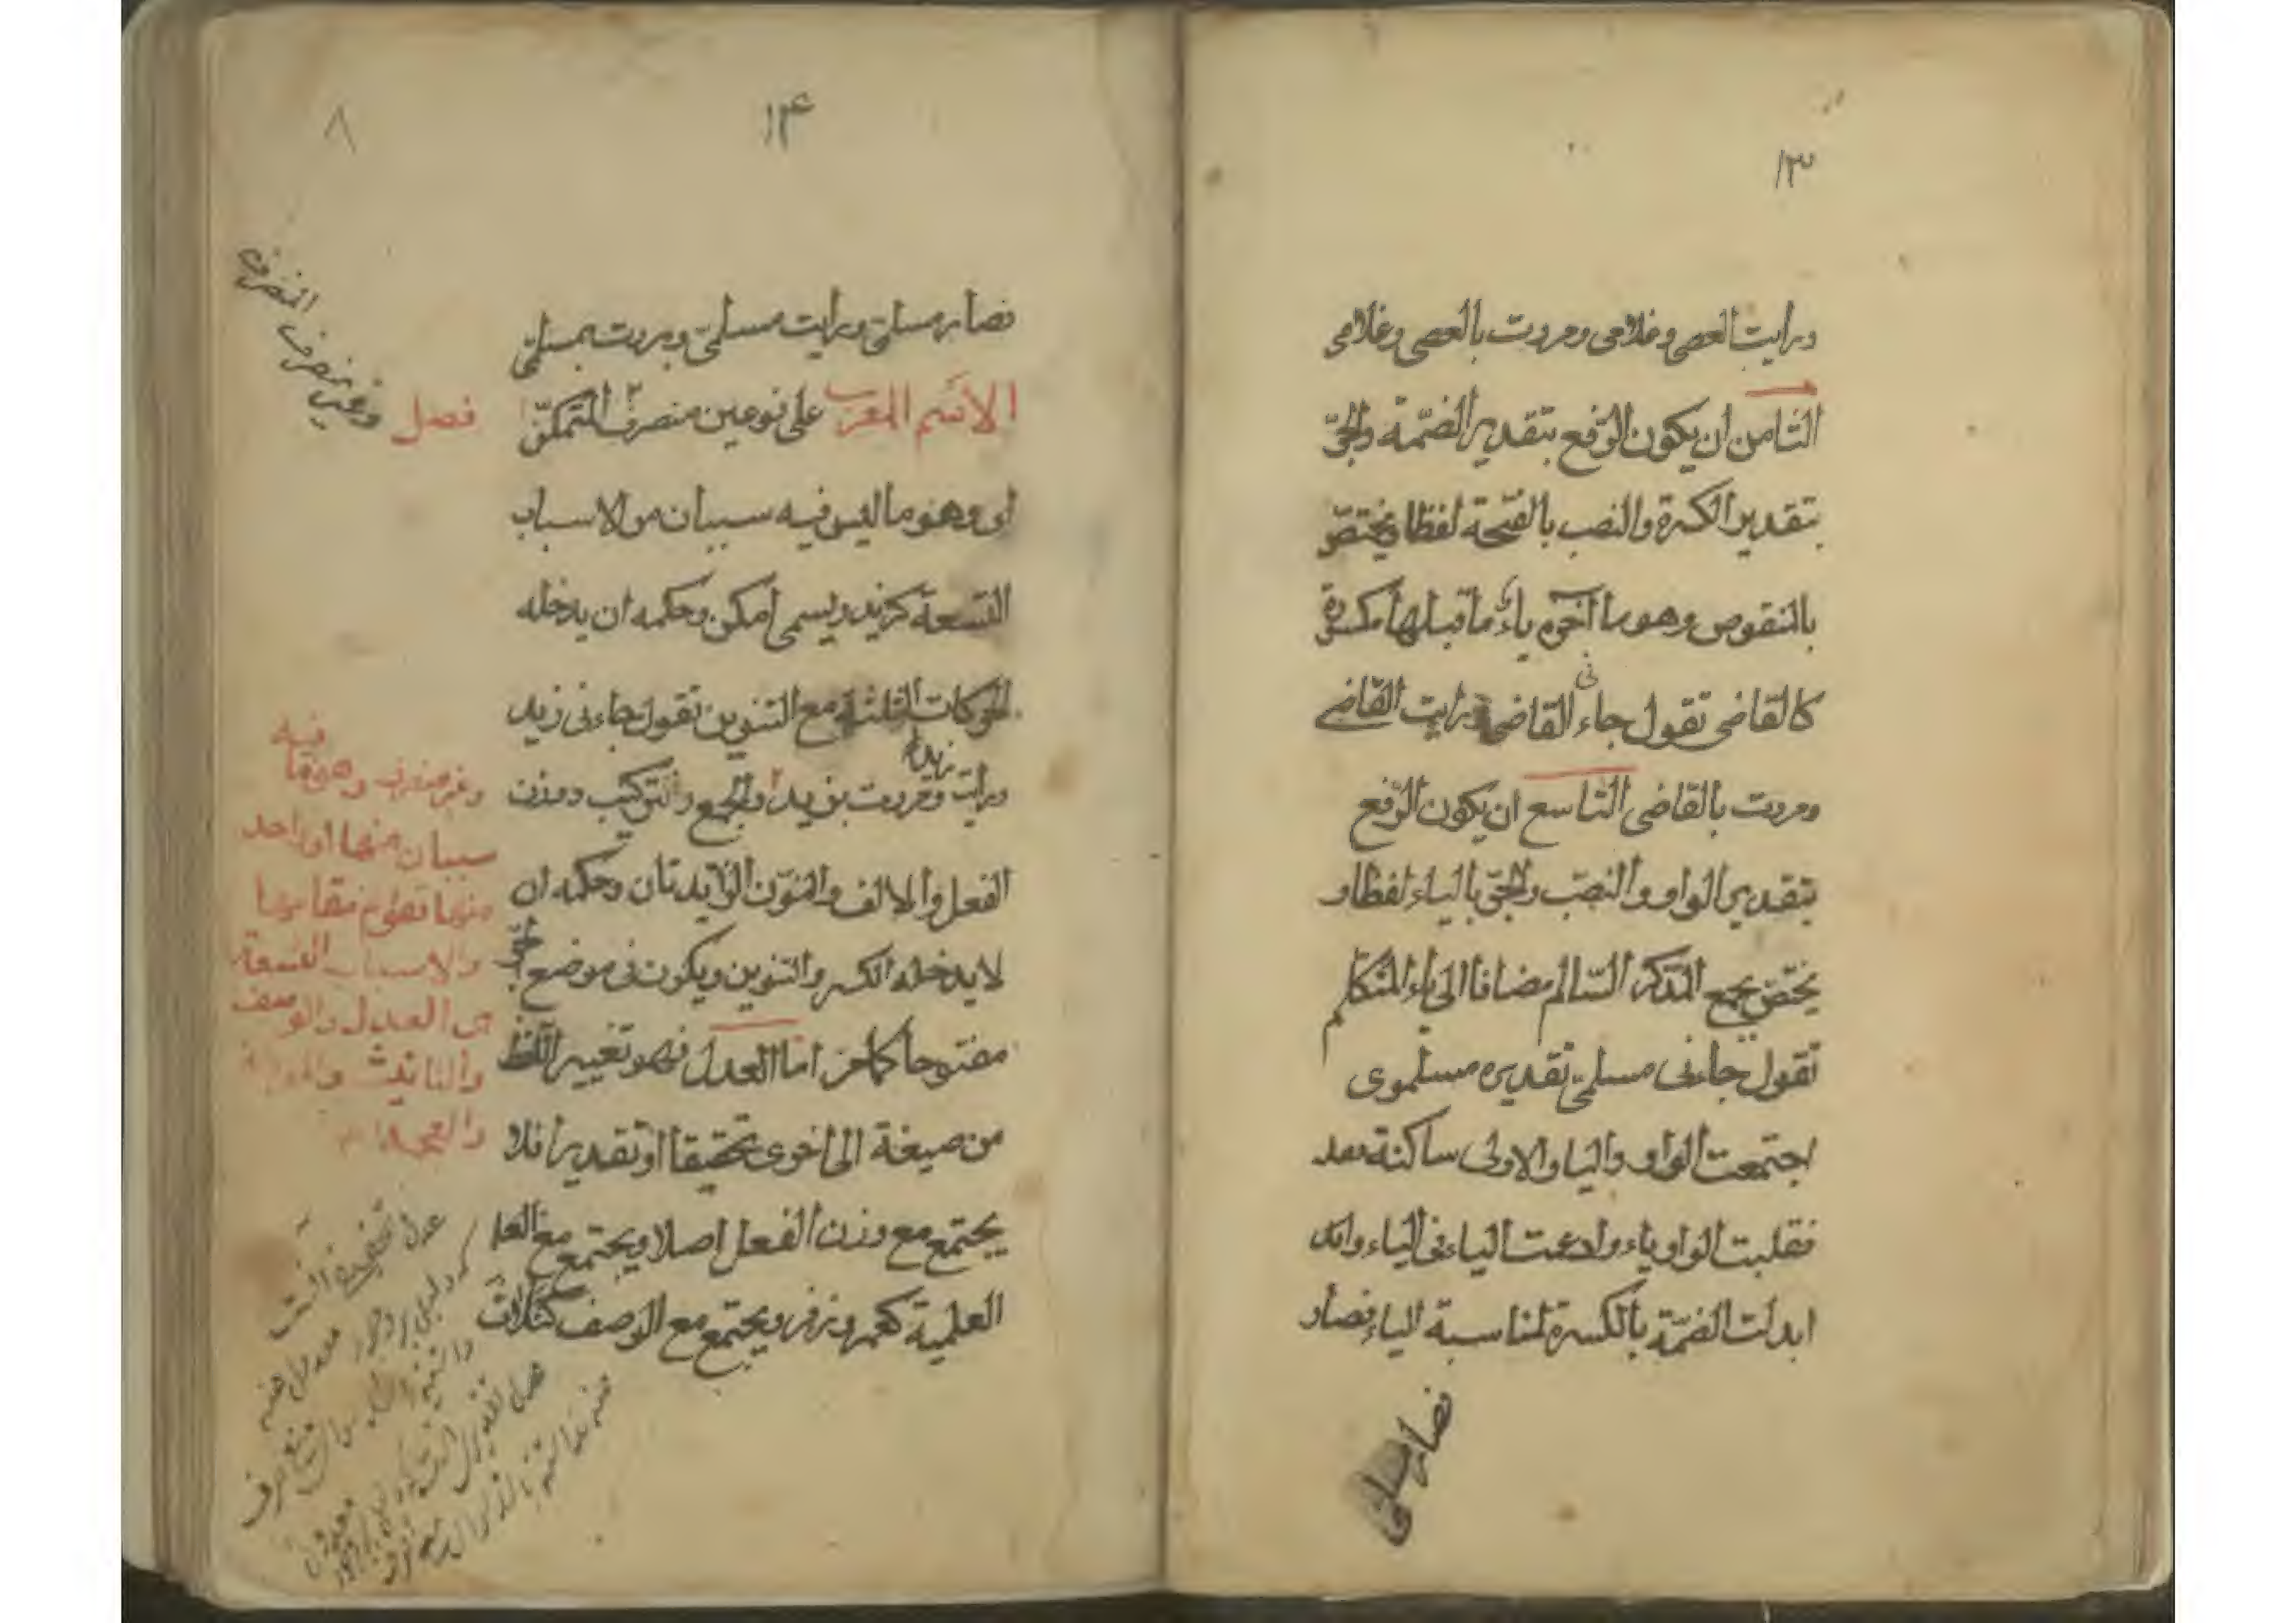 ١٣
ورایت العصی وغلامی ومررت بالعصی وغلامی
الثامن ان یکون الرّفع بتقدیر الضّمة والجرّ
بتقدیر الکسرة والنصب بالفتحة لفظا ویختصّ
بالمنقوص وهو ما آخره یاءٌ ما قبلها مکسورة
کالقاضی تقول جاءنی القاضی ورایت القاضی
ومررت بالقاضی التاسع ان یکون الرّفع
بتقدیر الواو والنصب والجرّ بالیاء لفظا و
یختصّ بجمع المذکر السّالم مضافا الی یاء المتکلم
تقول جاءنی مسلمیّ تقدیره مسلموی
اجتمعت الواو والیا والاولی ساکنة
فقلبت الواو یاء وادغمت الیاء فی الیاء
ابدلت الضمّة بالکسرة لمناسبة الیاء فصار
فصار مسلمی
١۴
٨
فصار مسلمیّ ورایت مسلمیّ ومررت بمسلمیّ
فصل
الاسم المعرب علی نوعین منصرف المتمکنّ
المنصرف
وغیر منصرف
ای وهو ما لیس فیه سببان من الاسباب
التسعة کزید ویسمی امکن وحکمه ان یدخله
الحرکات الثلثة مع التنوین تقول جاءنی زید
ورایت زیدا ومررت بزید والجمع والترکیب ووزن
الفعل والالف والنوّن الزّایدتان وحکمه ان
لا یدخله الکسر والتنوین ویکون فی موضع الجرّ
مفتوحا کما مر اما العدل فهو تغییر اللفظ
من صیغة الی اخری تحقیقا او تقدیرا فلا
یجتمع مع وزن الفعل اصلا ویجتمع مع العلم
العلمیة کعمر وزفر ویجتمع مع الوصف کثلاث
وغیر منصرف وهو ما فیه
سببان منها او واحد
منها تقوم مقامها
والاسباب التسعة
هی العدل والوصف
والتانیث والمعرفة
والعجمة